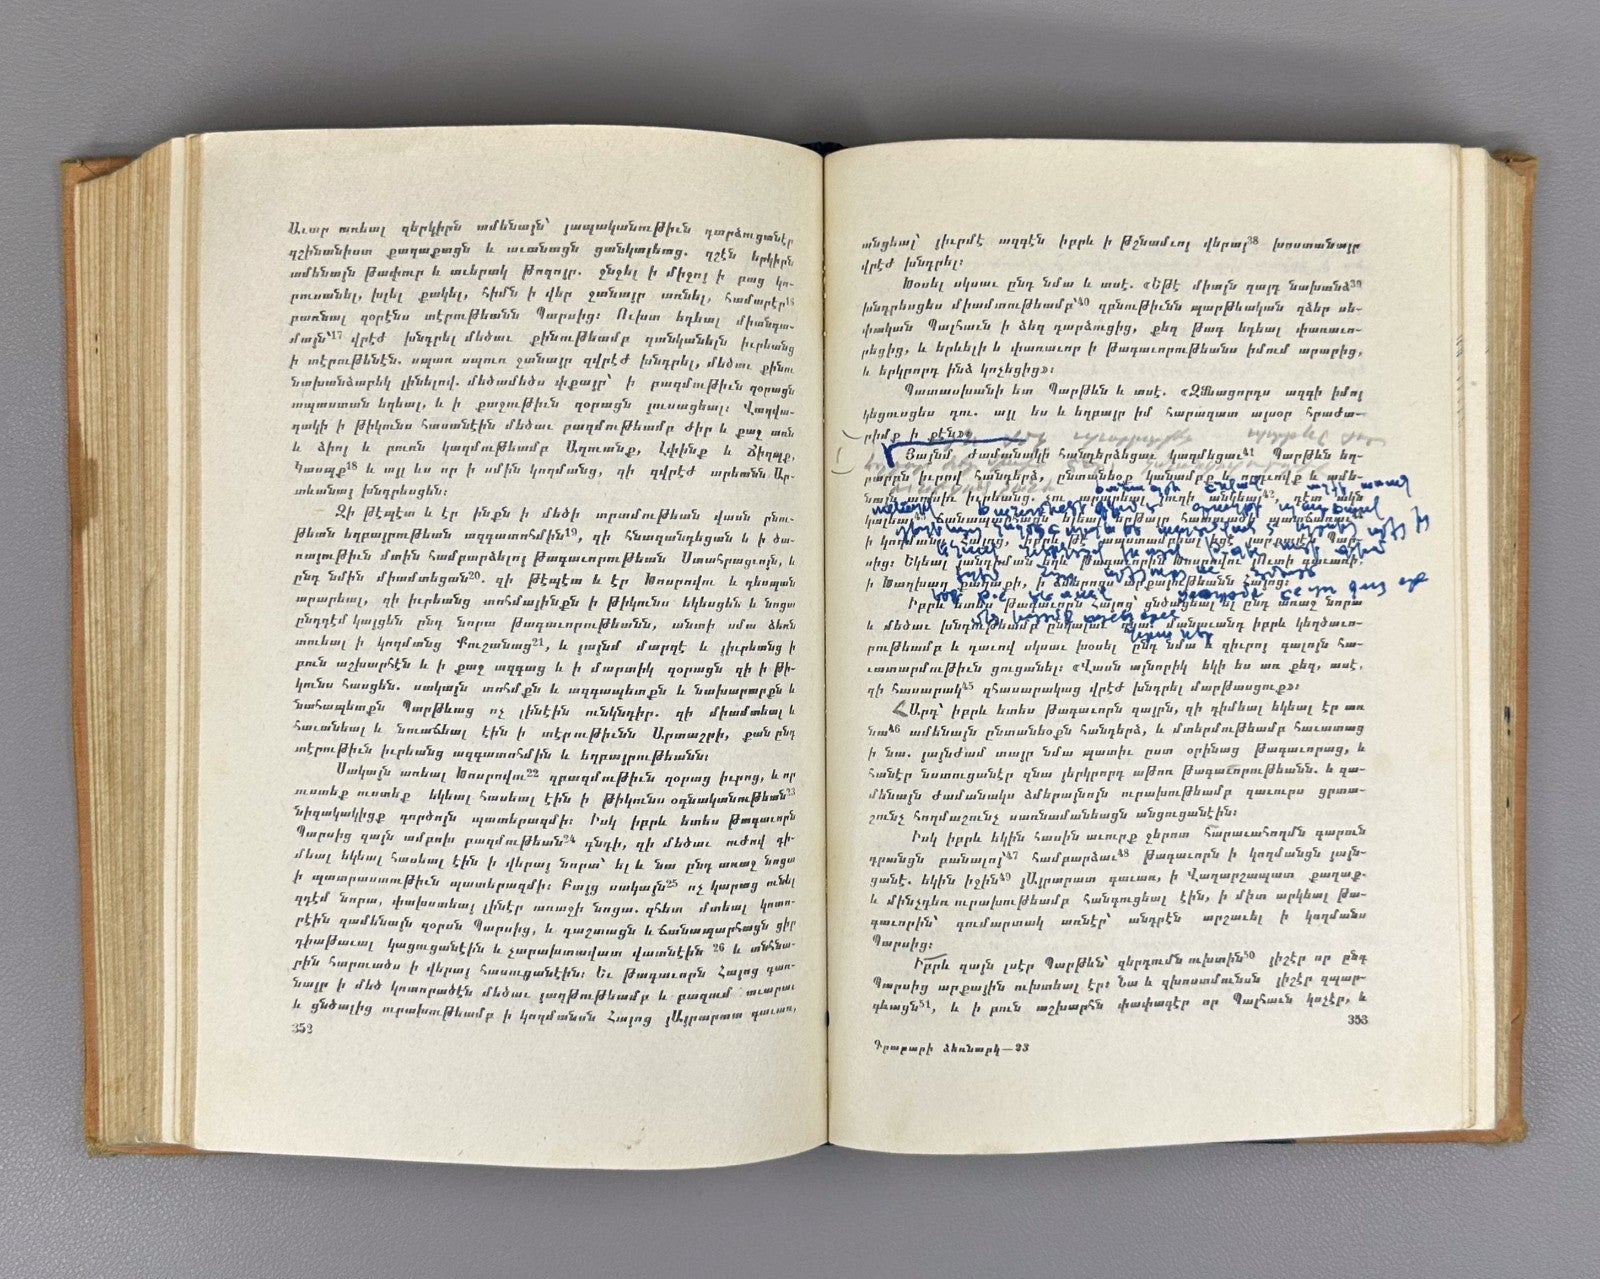 Աւար առեալ զերկիրն ամենայն՝ յապականութիւն դարձուցանէր
զշինանիստ քաղաքացն և աւանացն ցանկալեաց. զշէն երկիրն
ամենայն թափուր և աւերակ թողոյր. ջնջել ի միջոյ ի բաց կո-
րուսանել, խլել քակել, հիմն ի վեր ջանայր առնել, համարէր¹⁶
բառնալ զօրէնս տէրութեանն Պարսից։ Ուխտ եդեալ միանգա-
մայն՝¹⁷ վրէժ խնդրել մեծաւ քինութեամբ զանկանելն իւրեանց
ի տէրութենէն. սպառ սպուռ ջանայր զվրէժ խնդրել, մեծաւ քինու
նախանձաբեկ լինելով. մեծամեծս փքայր՝ ի բազմութիւն զօրացն
ապաստան եղեալ, և ի քաջութիւն զօրացն յուսացեալ։ Վաղվա-
ղակի ի թիկունս հասանէին մեծաւ բազմութեամբ ժիր և քաջ առն
և ձիոյ և բուռն կազմութեամբ Աղուանք, Լփինք և Ճիղպք,
Կասպք¹⁸ և այլ ևս որ ի սմին կողմանց, զի զվրէժ արեանն Ար-
տևանայ խնդրեսցեն։
Զի թէպէտ և էր ինքն ի մեծի տրտմութեան վասն բնու-
թեան եղբայրութեան ազգատոհմին¹⁹, զի հնազանդեցան և ի ծա-
ռայութիւն մտին համբարձելոյ թագաւորութեան Ստահրացւոյն, և
ընդ նմին միամտեցան²⁰. զի թէպէտ և էր Խոսրովու և դեսպան
արարեալ, զի իւրեանց տոհմայինքն ի թիկունս եկեսցեն և նոքա
ընդդէմ կալցեն ընդ նորա թագաւորութեանն, անտի սմա ձեռն
տուեալ ի կողմանց Քուշանաց²¹, և յայնմ մարդէ և յիւրեանց ի
բուն աշխարհէն և ի քաջ ազգաց և ի մարտիկ զօրացն զի ի թի-
կունս հասցեն. սակայն տոհմքն և ազգապետքն և նախարարքն և
նահապետքն Պարթևաց ոչ լինէին ունկնդիր. զի միամտեալ և
հաւանեալ և նուաճեալ էին ի տէրութիւնն Արտաշրի, քան ընդ
տէրութիւն իւրեանց ազգատոհմին և եղբայրութեանն։
Սակայն առեալ Խոսրովու²² զբազմութիւն զօրաց իւրոց, և որ
ուստեք ուստեք եկեալ հասեալ էին ի թիկունս օգնականութեան²³
նիզակակիցք գործոյն պատերազմի։ Իսկ իբրև ետես թագաւորն
Պարսից զայն ամբոխ բազմութեան²⁴ դնդի, զի մեծաւ ուժով դի-
մեալ եկեալ հասեալ էին ի վերայ նորա՝ ել և նա ընդ առաջ նոցա
ի պատրաստութիւն պատերազմի։ Բայց սակայն²⁵ ոչ կարաց ունել
զդէմ նորա, փախստեայ լինէր առաջի նոցա. զհետ մտեալ կոտո-
րէին զամենայն զօրսն Պարսից, և դաշտացն և ճանապարհացն ցիր
դիաթաւալ կացուցանէին և չարախտավատ վատնէին ²⁶ և անհնա-
րին հարուածս ի վերայ հասուցանէին։ Եւ թագաւորն Հայոց դառ-
նայր ի մեծ կոտորածէն մեծաւ յաղթութեամբ և բազում աւարաւ
և ցնծալից ուրախութեամբ ի կողմանսն Հայոց յԱյրարատ գաւառ,
352
անցեալ՝ յիւրմէ ազգէն իբրև ի թշնամւոյ վերայ³⁸ խոստանայր
վրէժ խնդրել։
Խօսել սկսաւ ընդ նմա և ասէ. «Եթէ միայն զայդ նախանձ³⁹
խնդրեսցես միամտութեամբ՝⁴⁰ զբնութիւնն պարթևական զձեր սե-
փական Պալհաւն ի ձեզ դարձուցից, քեզ թագ եդեալ փառաւո-
րեցից, և երևելի և փառաւոր ի թագաւորութեանս իմում արարից,
և երկրորդ ինձ կոչեցից»։
Պատասխանի ետ Պարթևն և ասէ. «ԶՄնացորդս ազգի իմոյ
կեցուսցես դու. այլ ես և եղբայր իմ հարազատ այսօր հրաժա-
րիմք ի քէն»։
Յայնմ ժամանակի հանդերձեցաւ կազմեցաւ⁴¹ Պարթևն եղ-
բարբն իւրով հանդերձ, ընտանեօք կանամբք և որդւովք և ամե-
ի Խաղխաղ քաղաքի, ի ձմերոցս արքայութեանն Հայոց։
Իբրև ետես թագաւորն Հայոց՝ ցնծացեալ ել ընդ առաջ նորա
և մեծաւ խնդութեամբ ընկալաւ զնա։ մանաւանդ իբրև կեղծաւո-
րութեամբ և դաւով սկսաւ խօսել ընդ նմա և զիւրոյ գալոյն հա-
ւատարմութիւն ցուցանել։ «Վասն այնորիկ եկի ես առ քեզ, ասէ,
զի հասարակ⁴⁵ զհասարակաց վրէժ խնդրել մարթասցուք»։
Արդ՝ իբրև ետես թագաւորն զայրն, զի դիմեալ եկեալ էր առ
նա⁴⁶ ամենայն ընտանեօքն հանդերձ, և մտերմութեամբ հաւատաց
ի նա. յայնժամ տայր նմա պատիւ ըստ օրինաց թագաւորաց, և
հանէր նստուցանէր զնա յերկրորդ աթոռ թագաւորութեանն. և զա-
մենայն ժամանակս ձմերայնոյն ուրախութեամբ զաւուրս ցրտա-
շունչ հողմաշունչ սառնամանեացն անցուցանէին։
Իսկ իբրև եկին հասին աւուրք ջերոտ հարաւահողմն գարուն
դրանցն բանալոյ՝⁴⁷ համբարձաւ⁴⁸ թագաւորն ի կողմանցն յայն-
ցանէ. եկին իջին⁴⁹ յԱյրարատ գաւառ, ի Վաղարշապատ քաղաք.
և մինչդեռ ուրախութեամբ հանգուցեալ էին, ի միտ արկեալ թա-
գաւորին՝ գումարտակ առնէր՝ անդրէն արշաւել ի կողմանս
Պարսից։
Իբրև զայն լսէր Պարթևն՝ զերդումն ուխտին⁵⁰ յիշէր որ ընդ
Պարսից արքային ուխտեալ էր։ Նա և զխոստմունսն յիշէր զպար-
գևացն⁵¹, և և ի բուն աշխարհն փափագէր որ Պալհաւն կոչէր, և
353
Գրաբարի ձեռնարկ—23